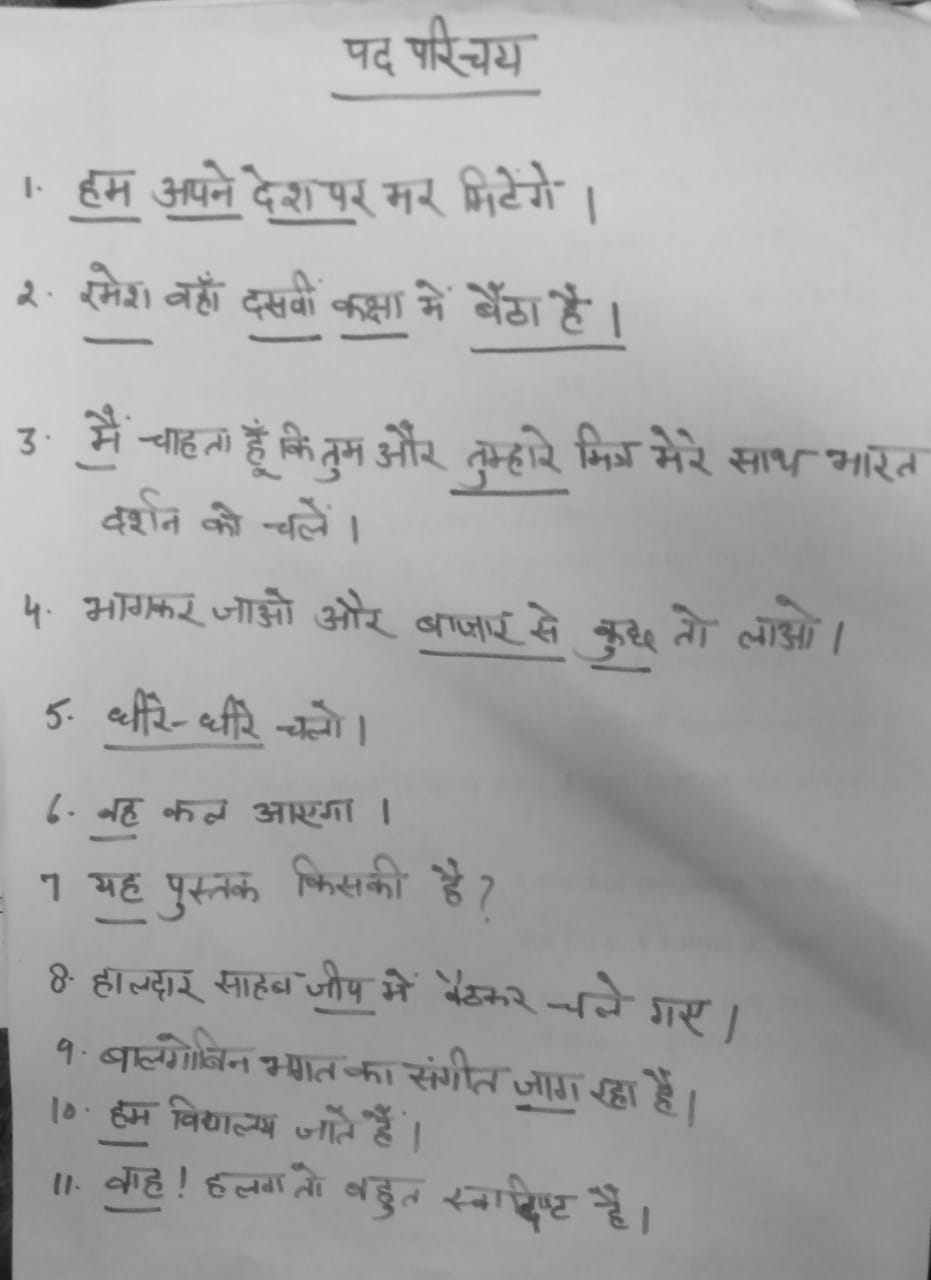 पद परिचय
1. हम अपने देश पर मर मिटेंगे।
२. रमेश वहाँ दसवीं कक्षा में बैठा है।
3. मैं चाहता हूँ कि तुम और तुम्हारे मित्र मेरे साथ भारत
दर्शन को चलें।
4. भागकर जाओ और बाजार से कुछ तो लाओ।
5. धीरे-धीरे चलो।
6. वह कल आएगा।
7 यह पुस्तक किसकी है?
8. हालदार साहब जीप में बैठकर चले गए।
9. बालगोबिन भगत का संगीत जाग रहा है।
10. हम विद्यालय जाते हैं।
11. वाह! हलवा तो बहुत स्वादिष्ट है।